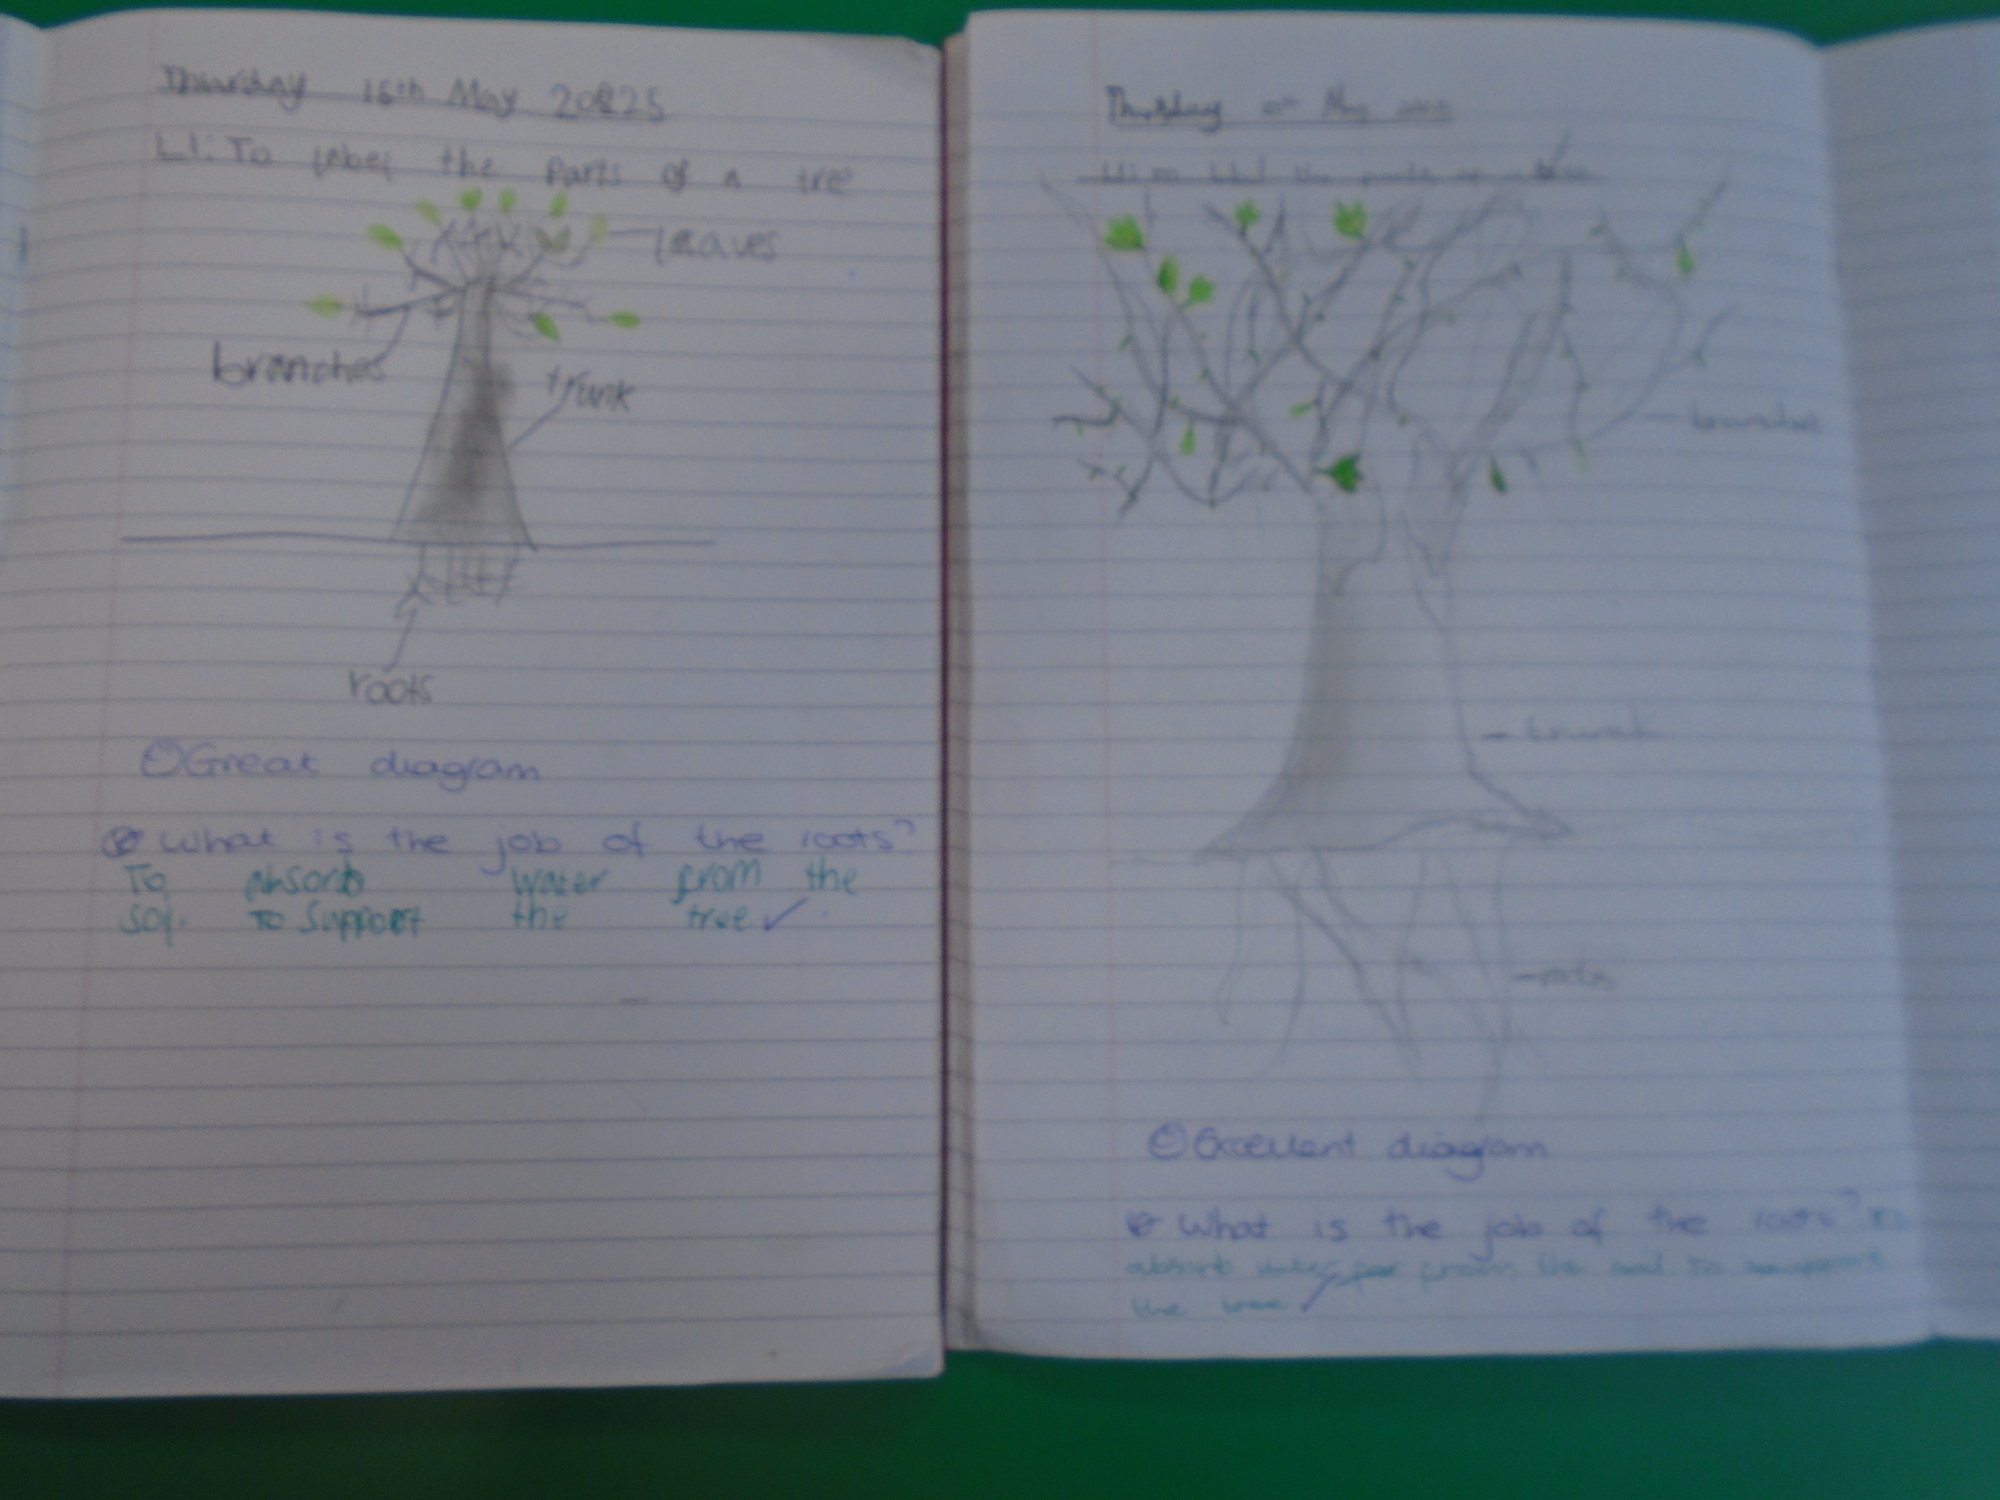 Thursday 15th May 2025
LI: To label the parts of a tree
leaves
branches
trunk
roots
Great diagram
What is the job of the roots?
To absorb water from the
soy. To support the tree.
Thursday May
branches
trunk
roots
Excellent diagram
What is the job of the roots?
absorb water from the soil to support
the tree